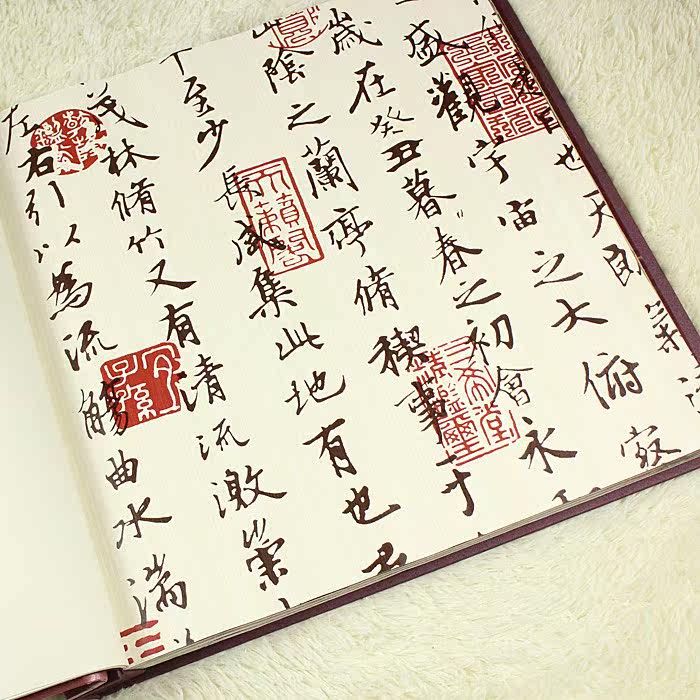 日也天朗
盛觀宇宙之大俯察
歲在癸丑暮春之初會永
陰之蘭亭脩稧事
至少長咸集此地有也
茂林脩竹又有清流激崇
左右引以為流觴曲水湍